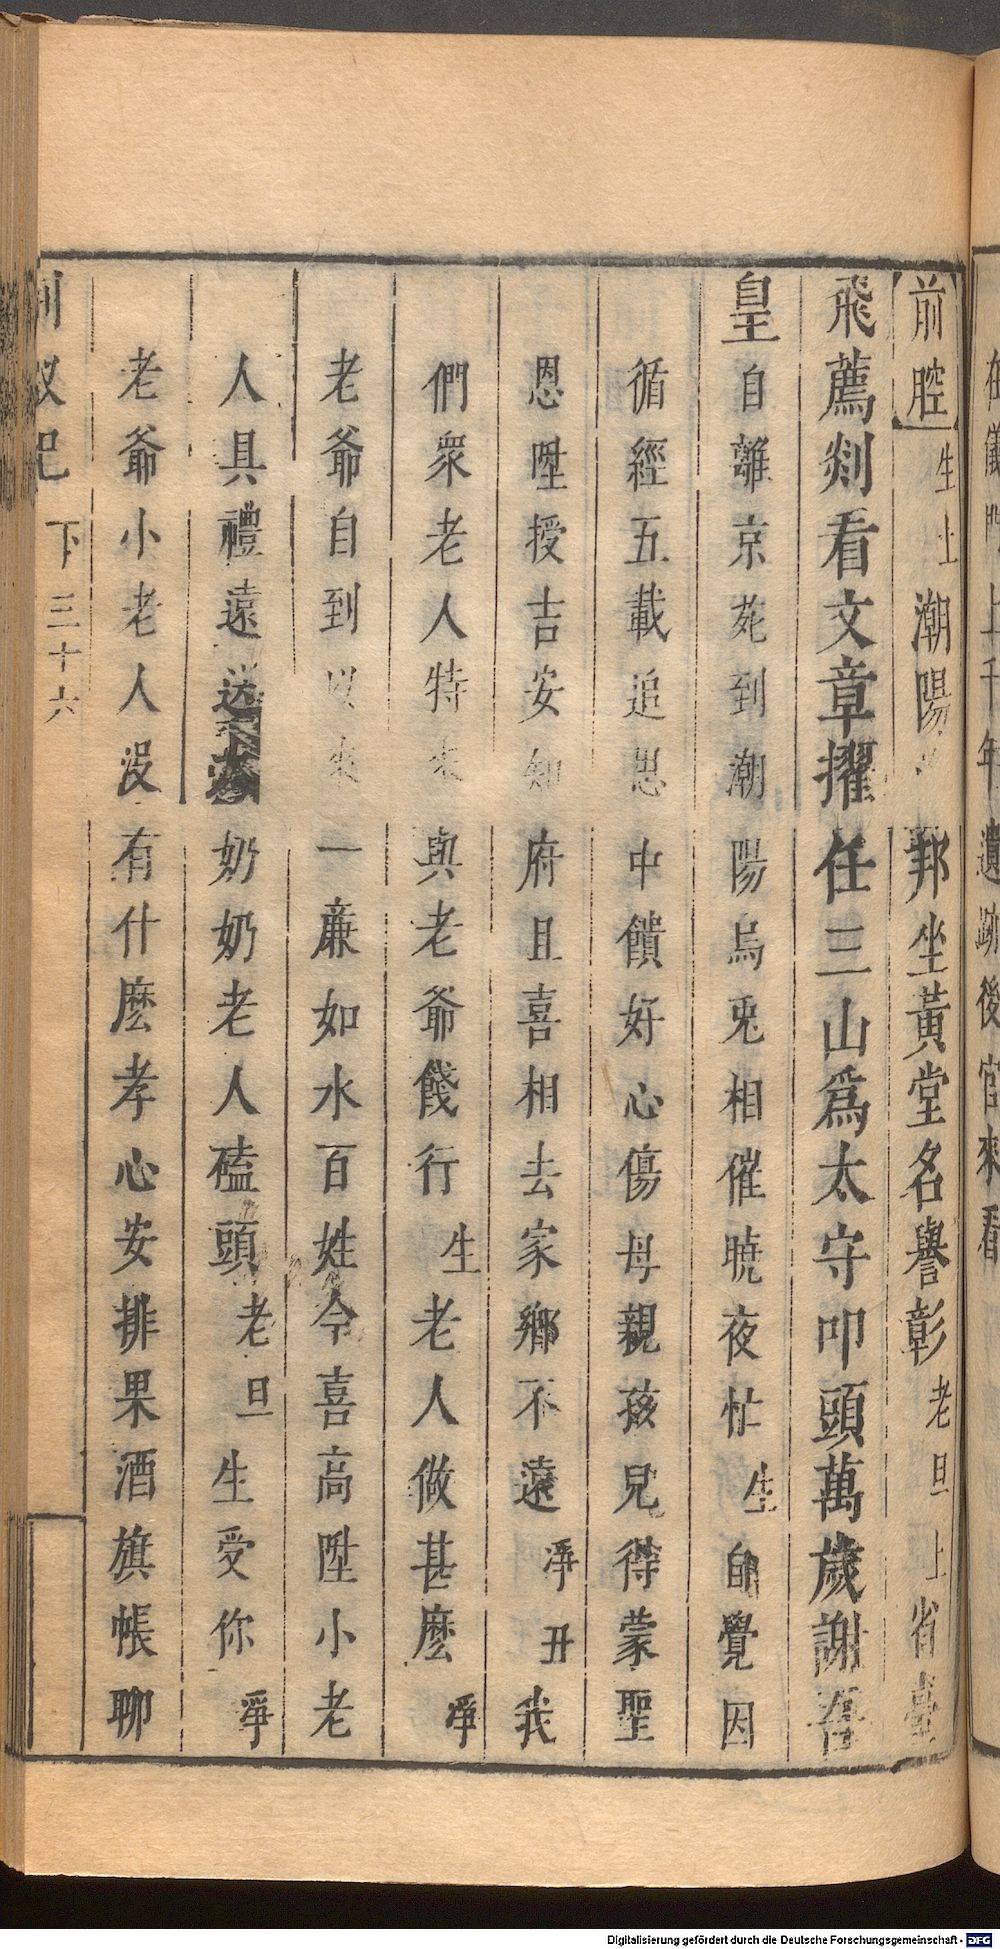 在儀門上千年遺跡後官來看
前腔 生上 潮陽 邦坐黃堂名譽彰 老旦上 省臺
飛薦剡看文章擢任三山為太守叩頭萬歲謝吾
皇 自離京苑到潮陽烏兎相催曉夜忙 生 自覺因
循經五載追思中饋好心傷母親孩兒待蒙聖
恩陞授吉安知府且喜相去家鄉不遠 淨丑 我
們衆老人特來與老爺餞行 生 老人做甚麽 淨
老爺自到以來一廉如水百姓今喜高陞小老
人具禮遠送 奶奶老人磕頭 老旦 生受你 淨
老爺小老人沒有什麽孝心安排果酒旗帳聊
荆釵記 下 三十六
Digitalisierung gefördert durch die Deutsche Forschungsgemeinschaft - DFG